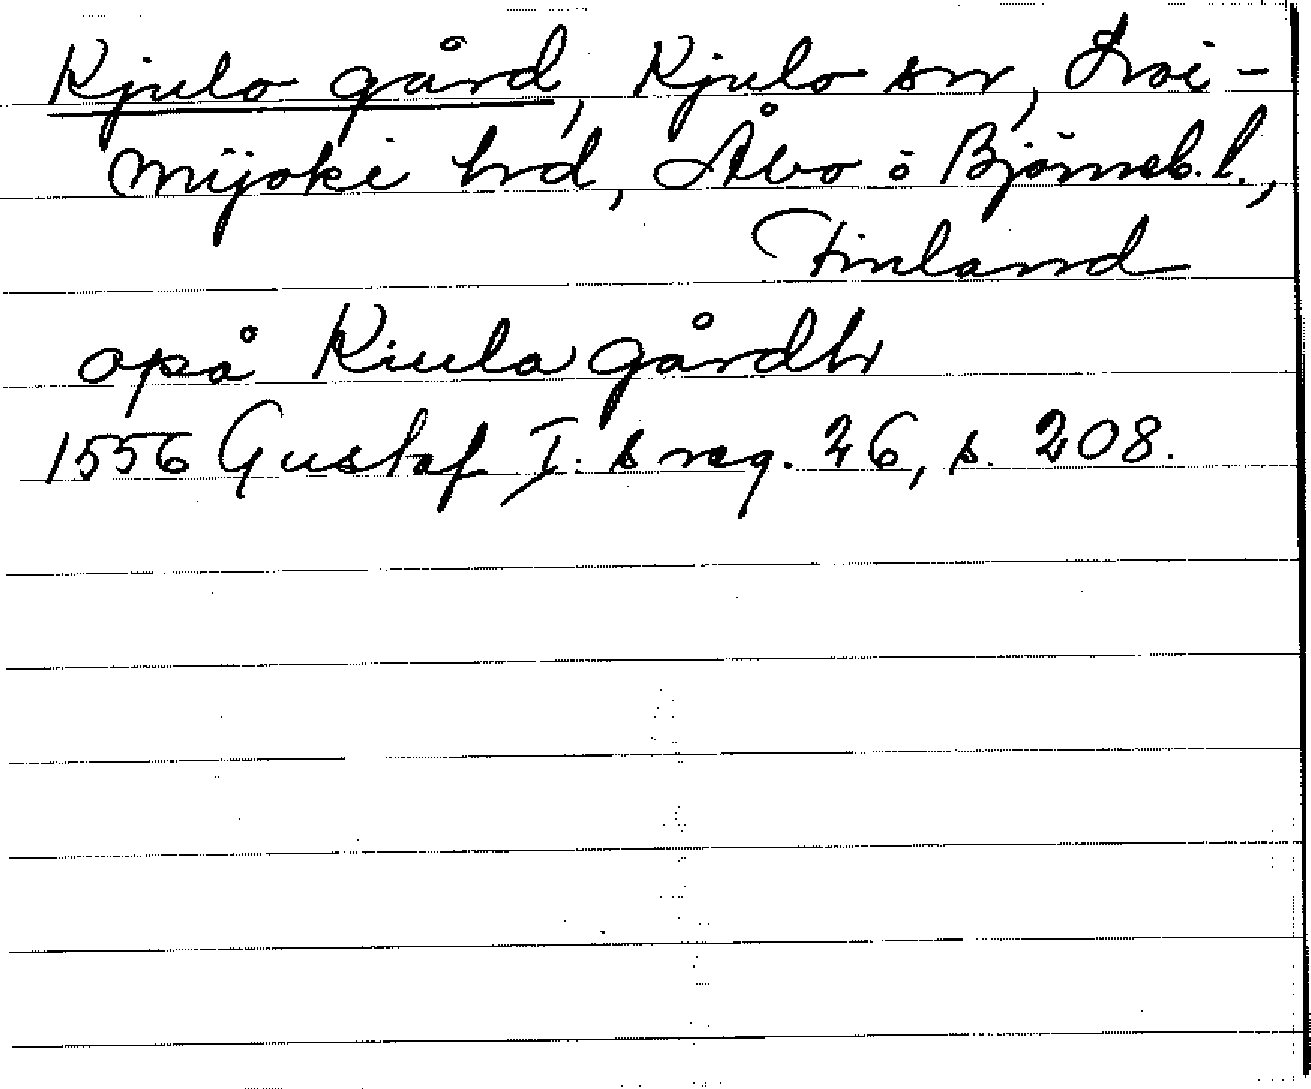 Kjulo gård, Kjulo sn, Loi-
mijoki hd, Åbo o Björneb. l.,
Finland
opå Kiula gårdh
1556 Gustaf I:s reg. 26, s. 208.